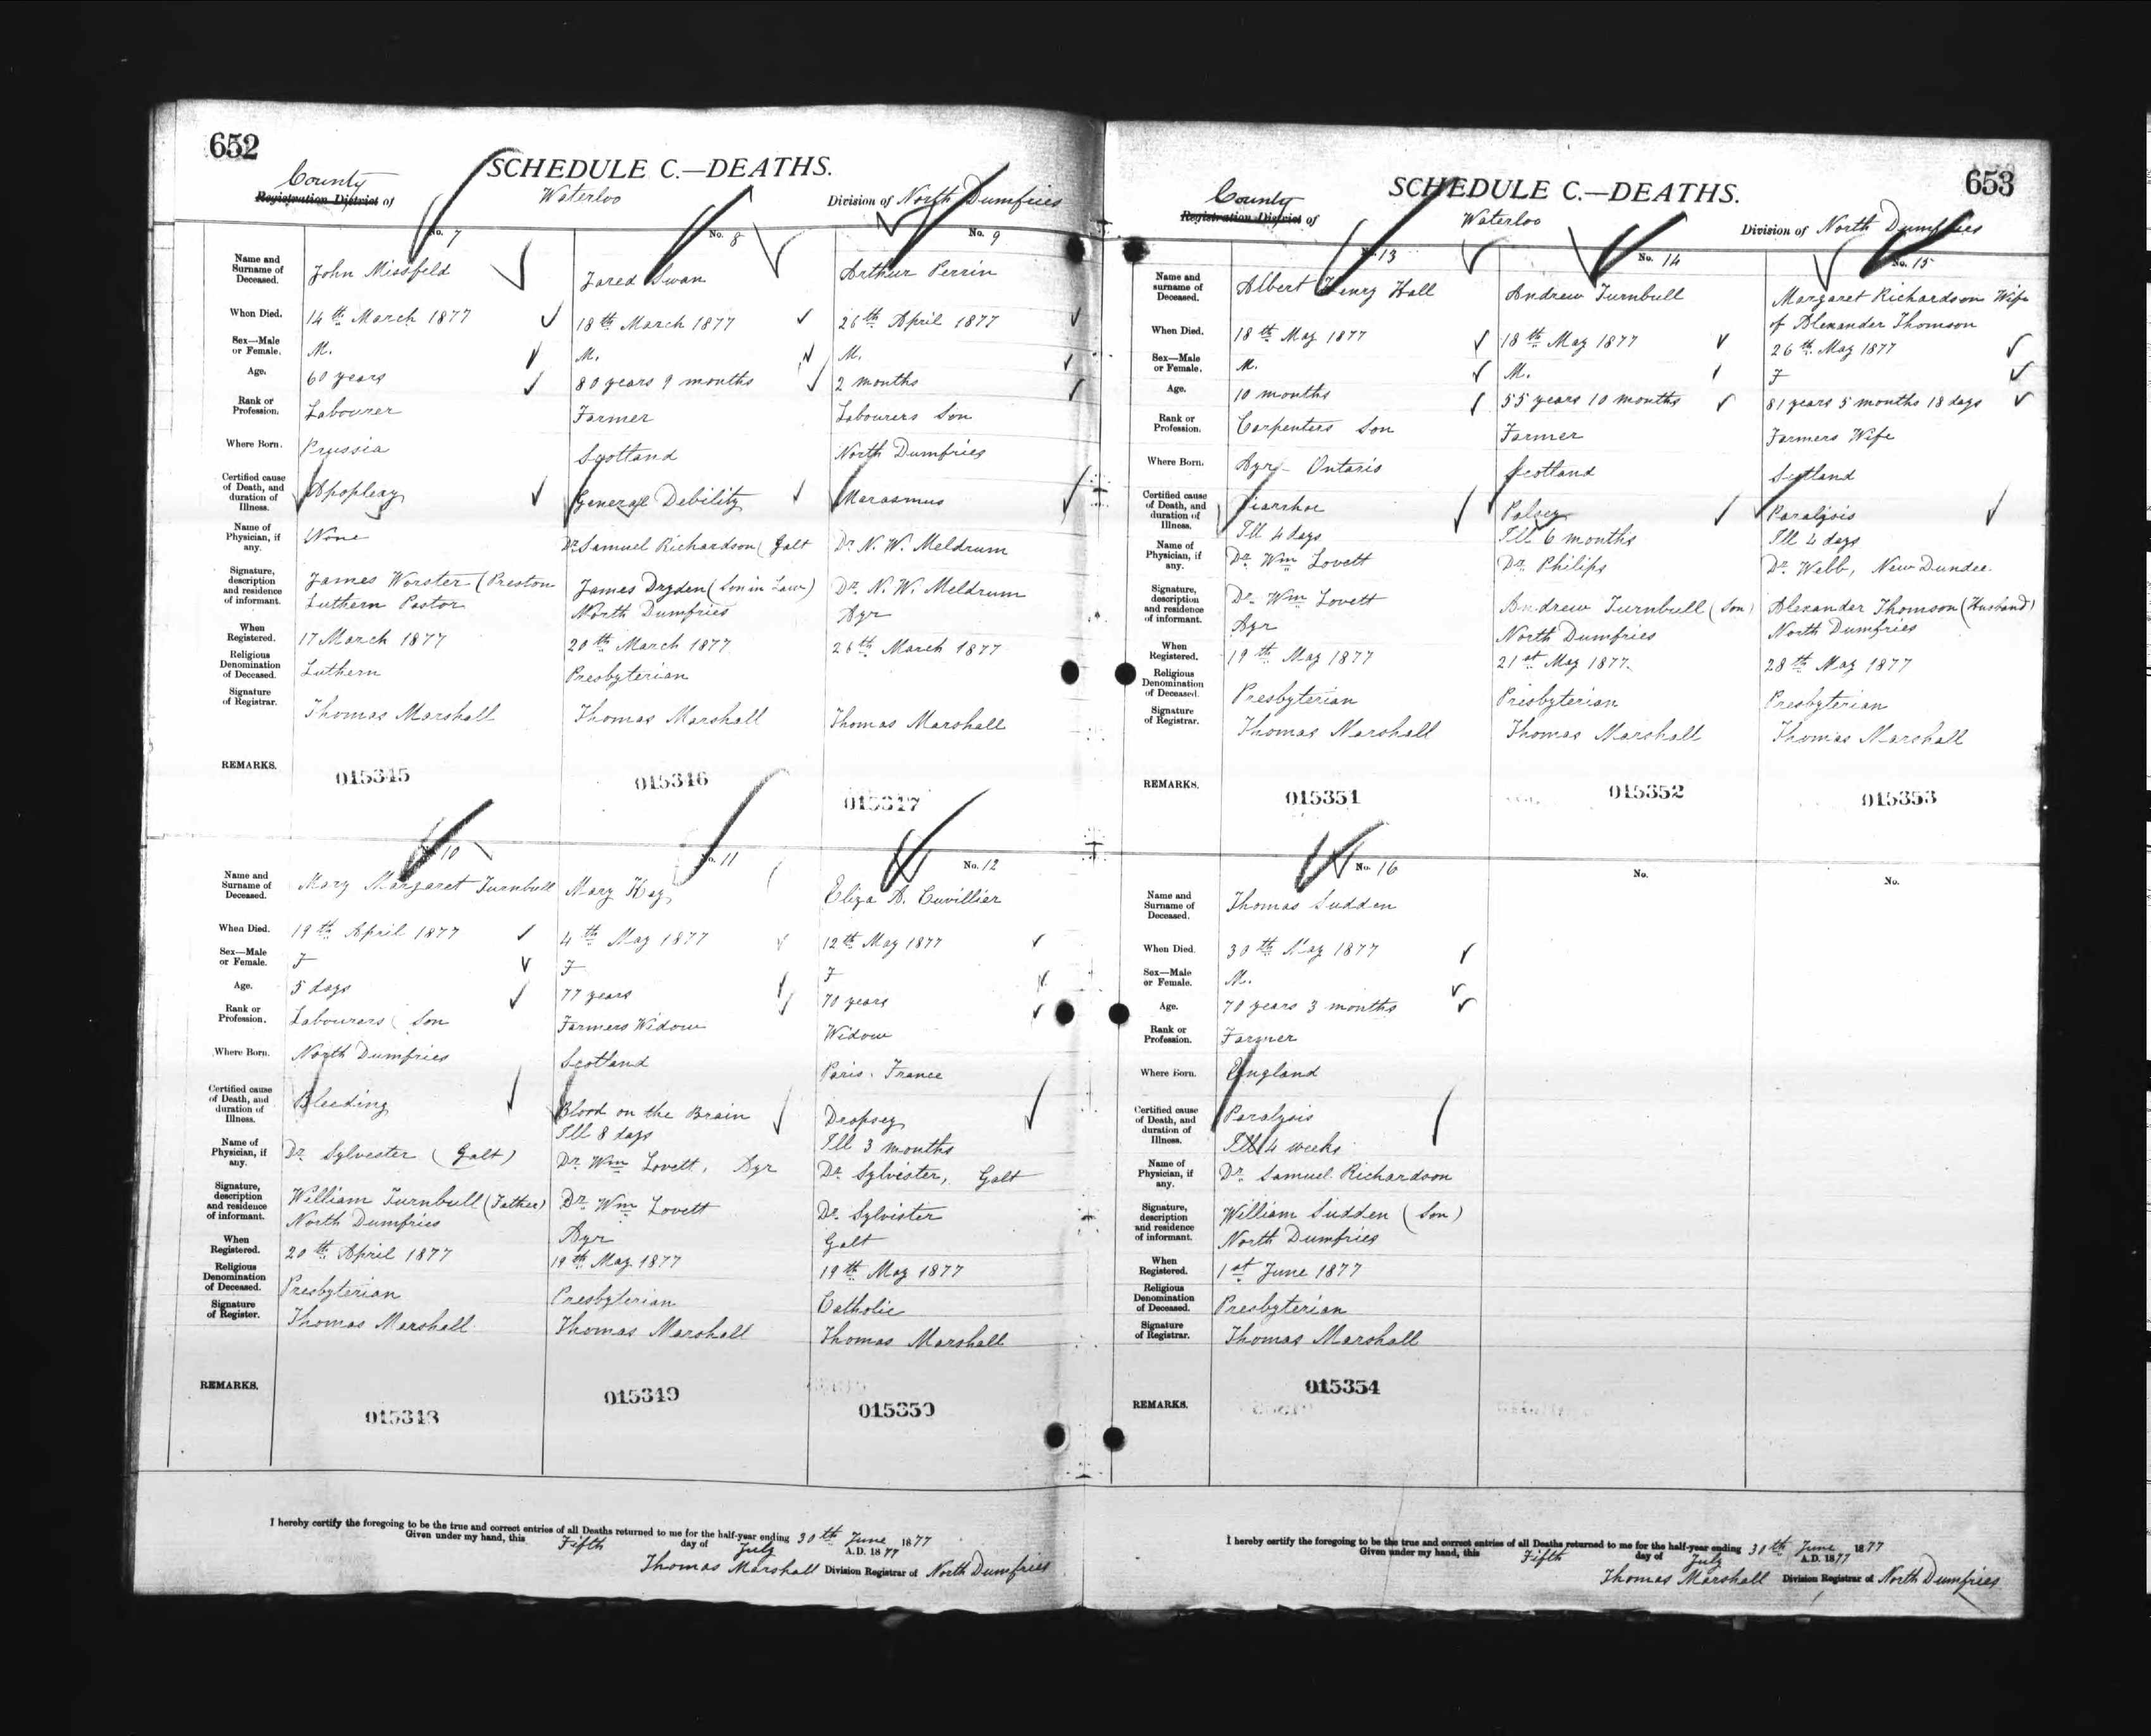 652
SCHEDULE C.—DEATHS.
County
Registration District of Waterloo Division of North Dumfries
No. 7 No. 8 No. 9
Name and Surname of Deceased. John Missfeld Jared Swan Arthur Perrin
When Died. 14th March 1877 18th March 1877 26th April 1877
Sex—Male or Female. M. M. M.
Age. 60 years 80 years 9 months 2 months
Rank or Profession. Labourer Farmer Labourers Son
Where Born. Prussia Scotland North Dumfries
Certified cause of Death, and duration of Illness. Apoplexy General Debility Marasmus
Name of Physician, if any. None Dr Samuel Richardson (Galt Dr. N. W. Meldrum
Signature, description and residence of informant. James Worster (Preston James Dryden (Son in Law) Dr. N. W. Meldrum
Luthern Pastor North Dumfries Ayr
When Registered. 17 March 1877 20th March 1877 26th March 1877
Religious Denomination of Deceased. Luthern Presbyterian
Signature of Registrar. Thomas Marshall Thomas Marshall Thomas Marshall
REMARKS. 015345 015346 015347
No. 10 No. 11 No. 12
Name and Surname of Deceased. Mary Margaret Turnbull Mary Kay Eliza A. Cuvillier
When Died. 19th April 1877 4th May 1877 12th May 1877
Sex—Male or Female. F F F
Age. 5 days 77 years 70 years
Rank or Profession. Labourers Son Farmers Widow Widow
Where Born. North Dumfries Scotland Paris. France
Certified cause of Death, and duration of Illness. Bleeding Blood on the Brain Dropsey
Ill 8 days Ill 3 months
Name of Physician, if any. Dr. Sylvester (Galt) Dr. Wm Lovett, Ayr Dr Sylvister, Galt
Signature, description and residence of informant. William Turnbull (Father) Dr. Wm Lovett Dr. Sylvister
North Dumfries Ayr Galt
When Registered. 20th April 1877 19th May 1877 19th May 1877
Religious Denomination of Deceased. Presbyterian Presbyterian Catholic
Signature of Register. Thomas Marshall Thomas Marshall Thomas Marshall
REMARKS. 015348 015349 015350
I hereby certify the foregoing to be the true and correct entries of all Deaths returned to me for the half-year ending 30th June 1877
Given under my hand, this Fifth day of July A.D. 1877
Thomas Marshall Division Registrar of North Dumfries
653
SCHEDULE C.—DEATHS.
County
Registration District of Waterloo Division of North Dumfries
No. 13 No. 14 No. 15
Name and surname of Deceased. Albert Henry Hall Andrew Turnbull Margaret Richardson Wife
of Alexander Thomson
When Died. 18th May 1877 18th May 1877 26th May 1877
Sex—Male or Female. M. M. F
Age. 10 months 55 years 10 months 81 years 5 months 18 days
Rank or Profession. Carpenters Son Farmer Farmers Wife
Where Born. Ayr - Ontario Scotland Scotland
Certified cause of Death, and duration of Illness. Diarrhoe Palsey Paralysis
Ill 4 days Ill 6 months Ill 4 days
Name of Physician, if any. Dr Wm Lovett Dr. Philips Dr. Webb, New Dundee.
Signature, description and residence of informant. Dr. Wm Lovett Andrew Turnbull (Son) Alexander Thomson (Husband)
Ayr North Dumfries North Dumfries
When Registered. 19th May 1877 21st May 1877. 28th May 1877
Religious Denomination of Deceased. Presbyterian Presbyterian Presbyterian
Signature of Registrar. Thomas Marshall Thomas Marshall Thomas Marshall
REMARKS. 015351 015352 015353
No. 16 No. No.
Name and Surname of Deceased. Thomas Sudden
When Died. 30th May 1877
Sex—Male or Female. M.
Age. 70 years 3 months
Rank or Profession. Farmer
Where Born. England
Certified cause of Death, and duration of Illness. Paralysis
Ill 4 weeks
Name of Physician, if any. Dr. Samuel Richardson
Signature, description and residence of informant. William Sudden (Son)
North Dumfries
When Registered. 1st June 1877
Religious Denomination of Deceased. Presbyterian
Signature of Registrar. Thomas Marshall
REMARKS. 015354
I hereby certify the foregoing to be the true and correct entries of all Deaths returned to me for the half-year ending 30th June 1877
Given under my hand, this Fifth day of July A.D. 1877
Thomas Marshall Division Registrar of North Dumfries